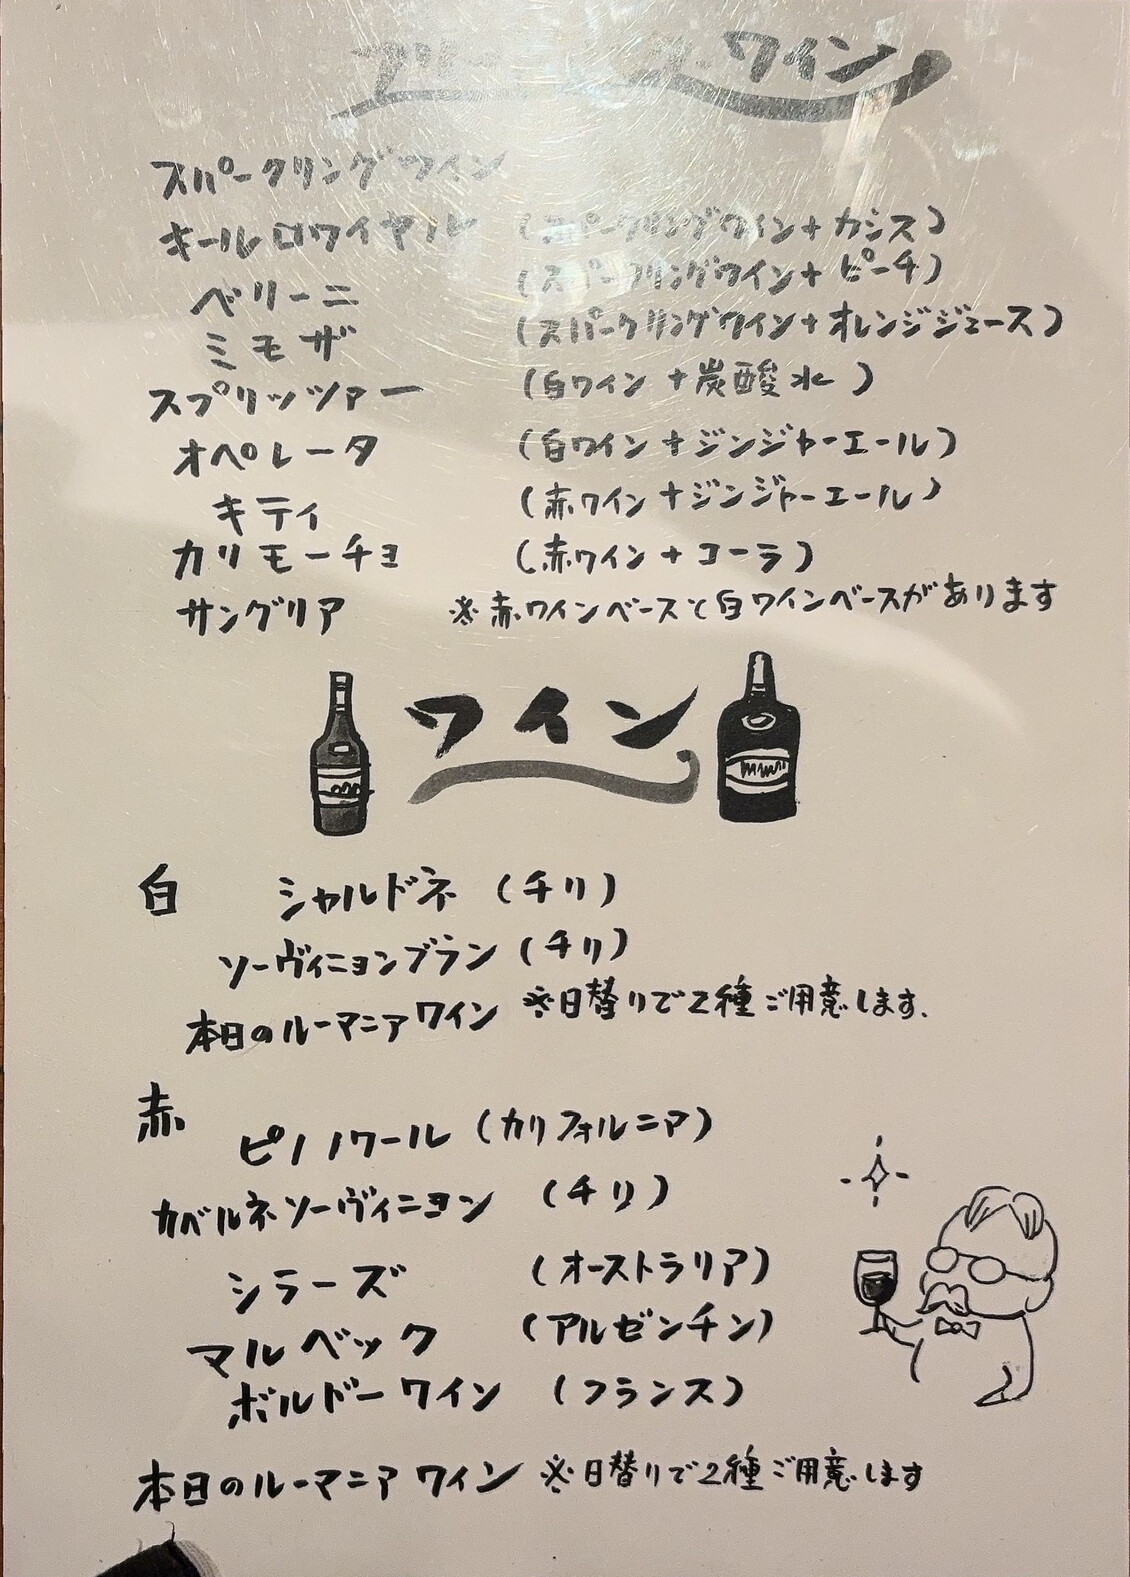 ワイン
スパークリングワイン
キールロワイヤル (スパークリングワイン+カシス)
ベリーニ (スパークリングワイン+ピーチ)
ミモザ (スパークリングワイン+オレンジジュース)
スプリッツァー (白ワイン+炭酸水)
オペレータ (白ワイン+ジンジャーエール)
キティ (赤ワイン+ジンジャーエール)
カリモーチョ (赤ワイン+コーラ)
サングリア ※赤ワインベースと白ワインベースがあります
ワイン
白 シャルドネ (チリ)
ソーヴィニヨンブラン (チリ)
本日のルーマニアワイン ※日替りで2種ご用意します.
赤
ピノノワール (カリフォルニア)
カベルネソーヴィニヨン (チリ)
シラーズ (オーストラリア)
マルベック (アルゼンチン)
ボルドーワイン (フランス)
本日のルーマニアワイン ※日替りで2種ご用意します